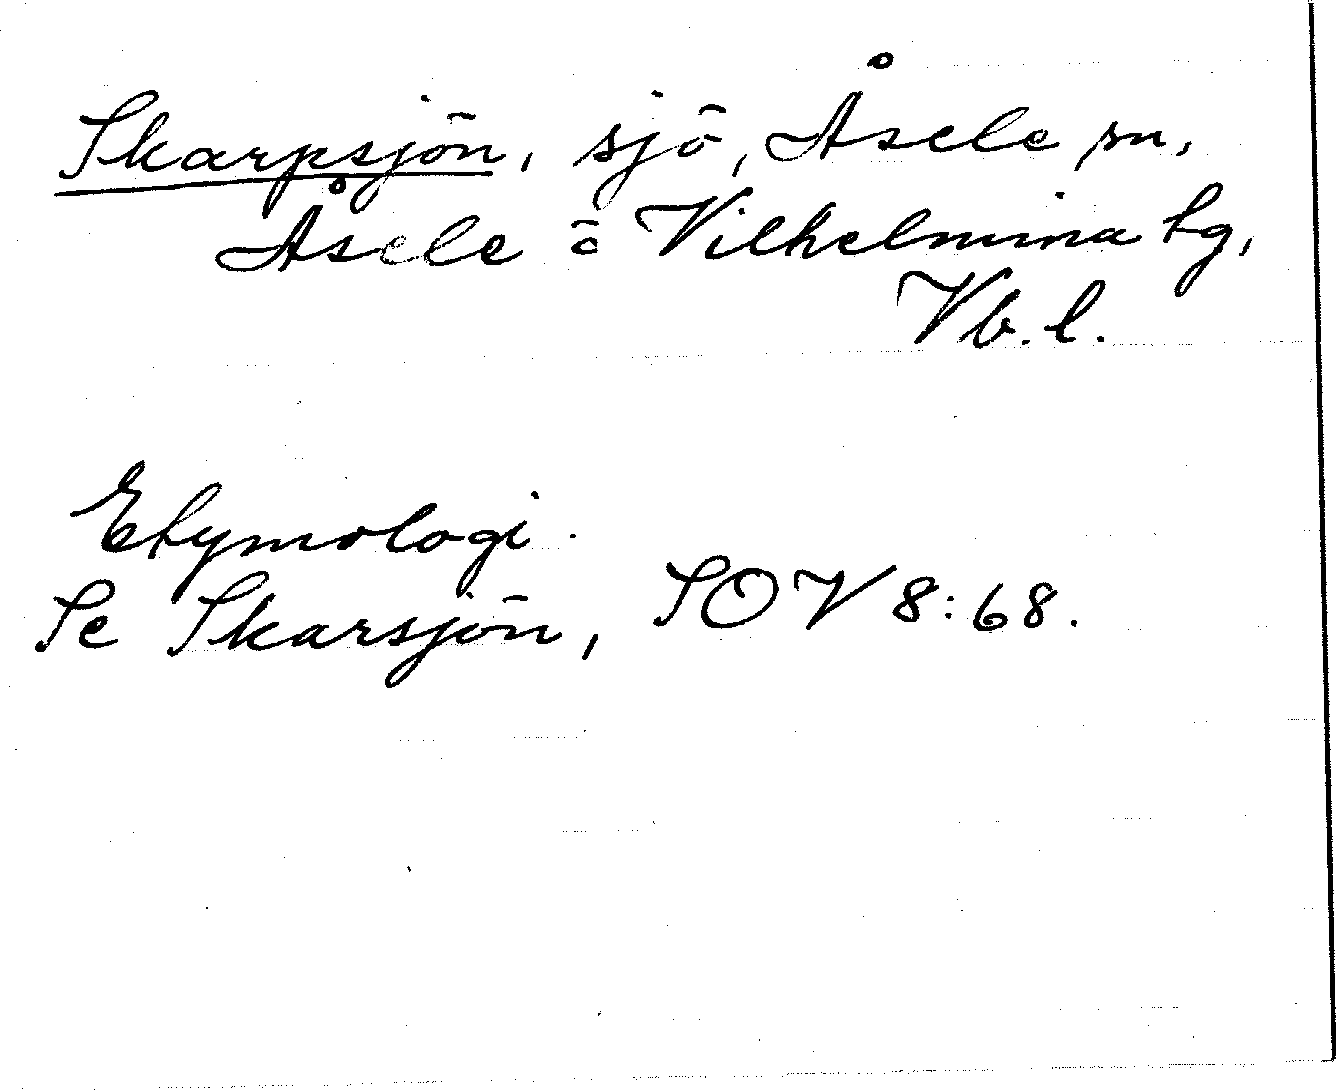 Skarpsjön, sjö, Åsele sn,
Åsele o Vilhelmina tg,
Vb. l.
Etymologi.
Se Skarsjön, SOV 8:68.